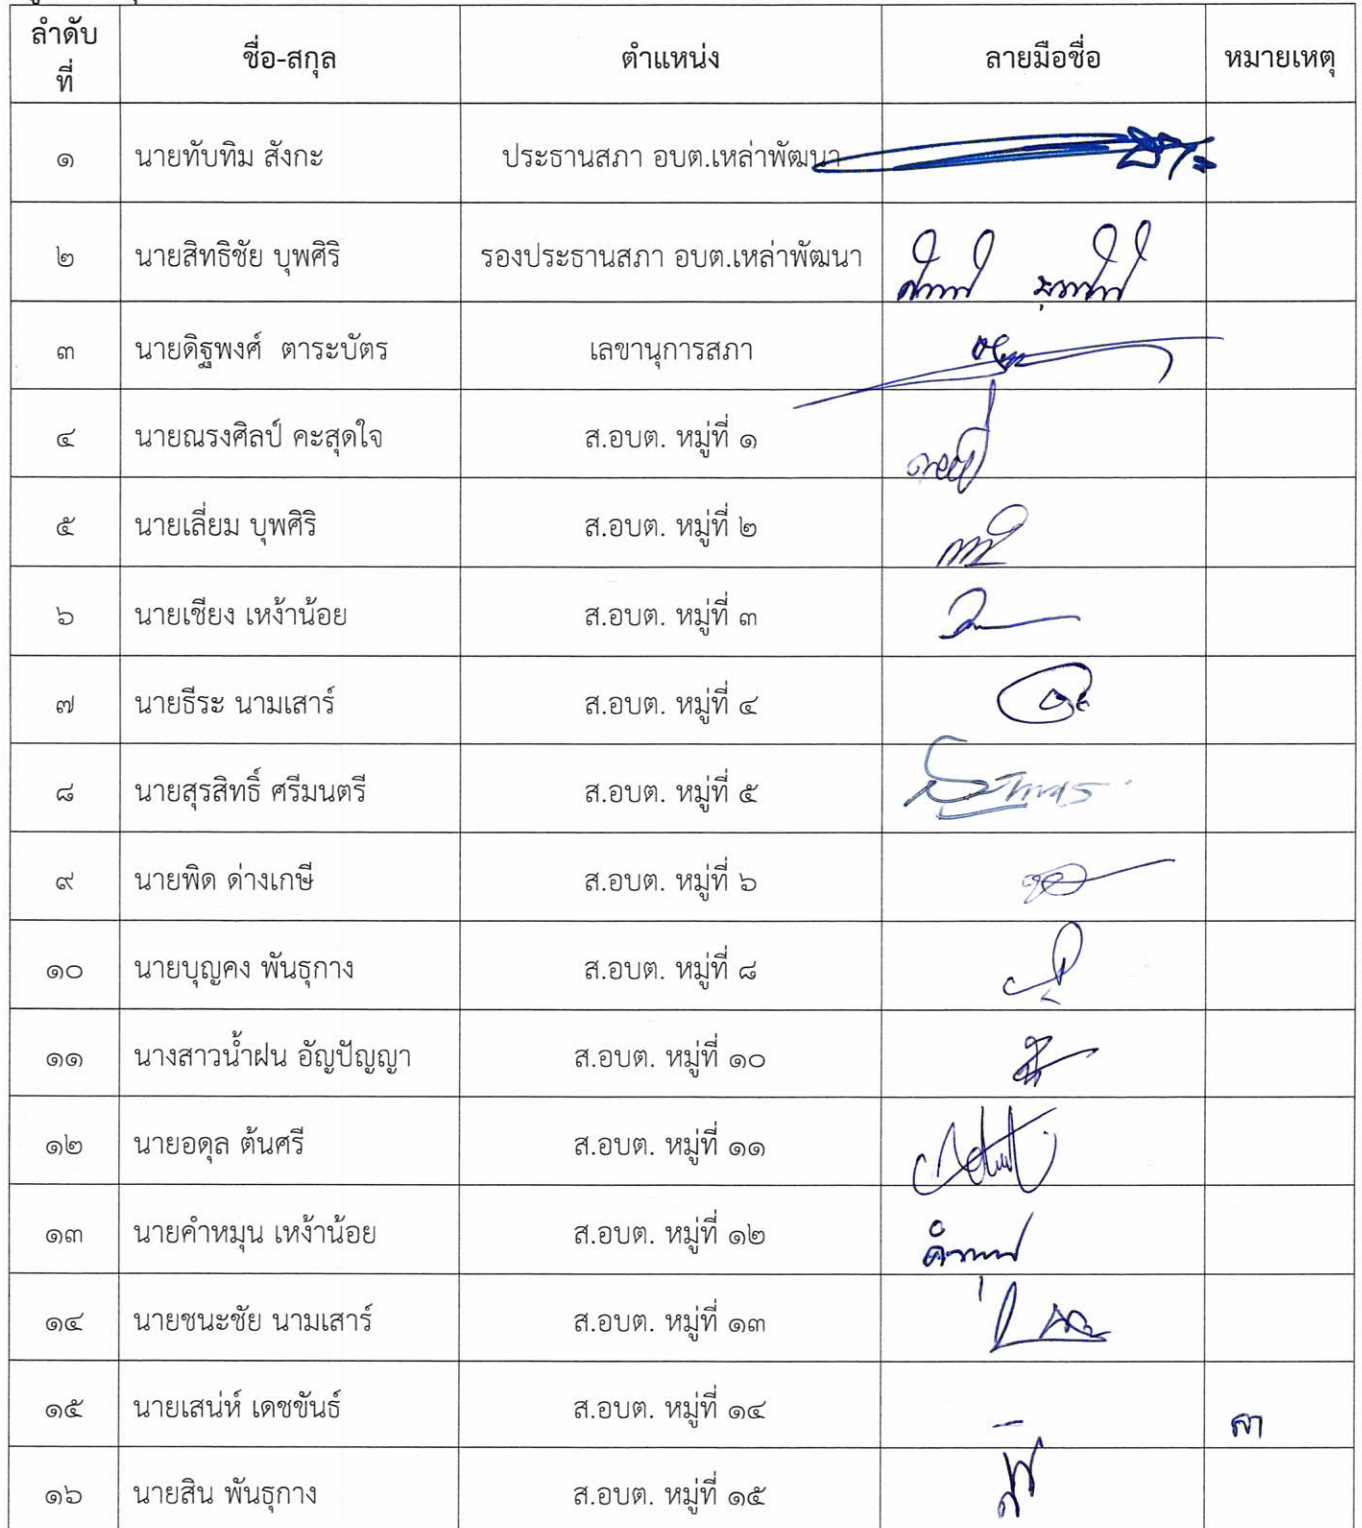 ลำดับที่ ชื่อ-สกุล ตำแหน่ง ลายมือชื่อ หมายเหตุ
๑ นายทับทิม สังกะ ประธานสภา อบต.เหล่าพัฒนา
๒ นายสิทธิชัย บุพศิริ รองประธานสภา อบต.เหล่าพัฒนา
๓ นายดิฐพงศ์ ตาระบัตร เลขานุการสภา
๔ นายณรงศิลป์ คะสุดใจ ส.อบต. หมู่ที่ ๑
๕ นายเลี่ยม บุพศิริ ส.อบต. หมู่ที่ ๒
๖ นายเชียง เหง้าน้อย ส.อบต. หมู่ที่ ๓
๗ นายธีระ นามเสาร์ ส.อบต. หมู่ที่ ๔
๘ นายสุรสิทธิ์ ศรีมนตรี ส.อบต. หมู่ที่ ๕
๙ นายพิด ด่างเกษี ส.อบต. หมู่ที่ ๖
๑๐ นายบุญคง พันธุกาง ส.อบต. หมู่ที่ ๘
๑๑ นางสาวน้ำฝน อัญปัญญา ส.อบต. หมู่ที่ ๑๐
๑๒ นายอดุล ต้นศรี ส.อบต. หมู่ที่ ๑๑
๑๓ นายคำหมุน เหง้าน้อย ส.อบต. หมู่ที่ ๑๒
๑๔ นายชนะชัย นามเสาร์ ส.อบต. หมู่ที่ ๑๓
๑๕ นายเสน่ห์ เดชขันธ์ ส.อบต. หมู่ที่ ๑๔ - ลา
๑๖ นายสิน พันธุกาง ส.อบต. หมู่ที่ ๑๕